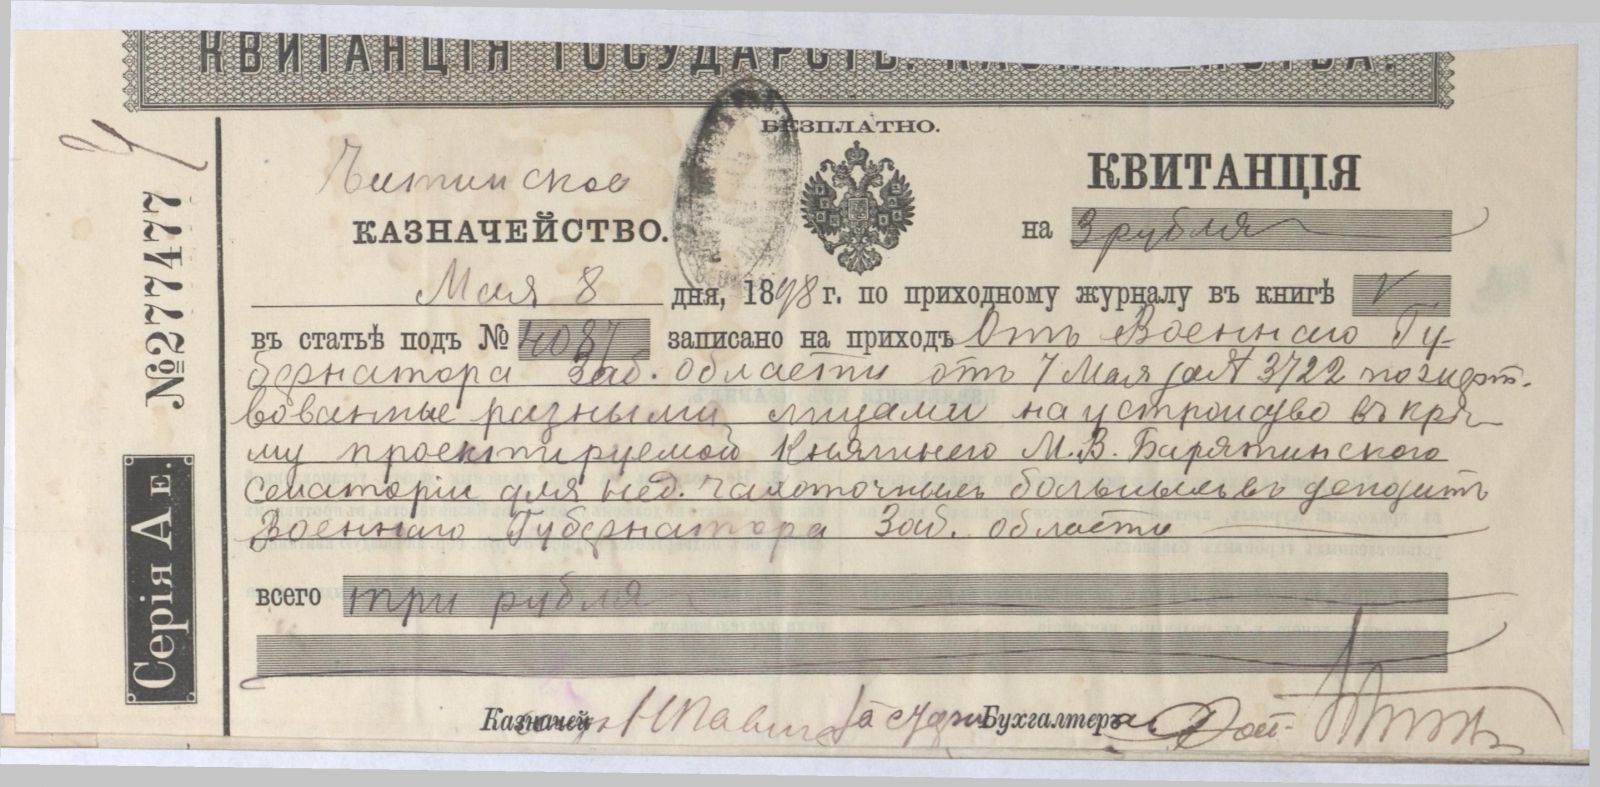 КВИТАНЦІЯ ГОСУДАРСТВ. КАЗНАЧЕЙСТВА.
БЕЗПЛАТНО.
Читинское
КАЗНАЧЕЙСТВО.
КВИТАНЦІЯ
на 3 рубля
Мая 8 дня, 1898 г. по приходному журналу въ книгѣ V
въ статьѣ подъ № 4087 записано на приходъ Отъ Военнаго Гу-
бернатора Заб. области отъ 7 Мая за № 3722 пожерт-
вованные разными лицами на устройство въ Кры-
му проектируемой Княгинею М. В. Барятинского
санаторіи для нед. чахоточныхъ больныхъ въ депозитъ
Военнаго Губернатора Заб. области
всего три рубля
Казначей
Бухгалтеръ
Серія А Е.
№ 277477